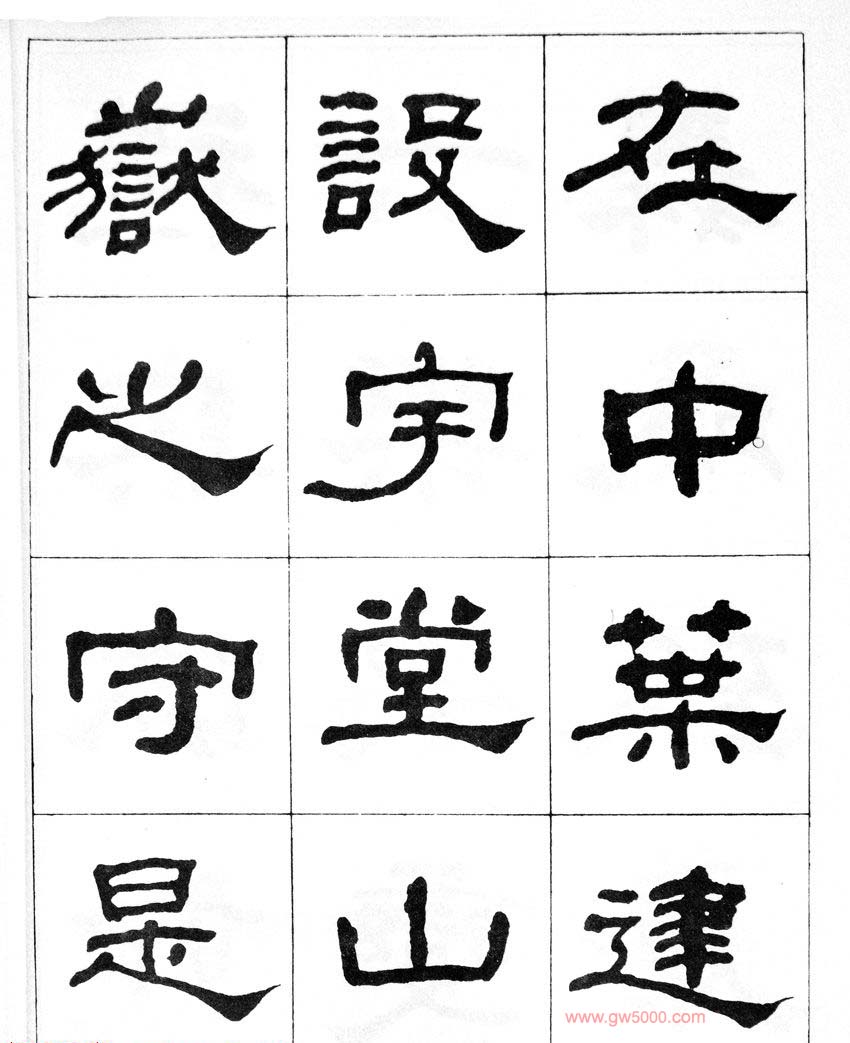 在中葉建
設宇堂山
嶽之守是
www.gw5000.com